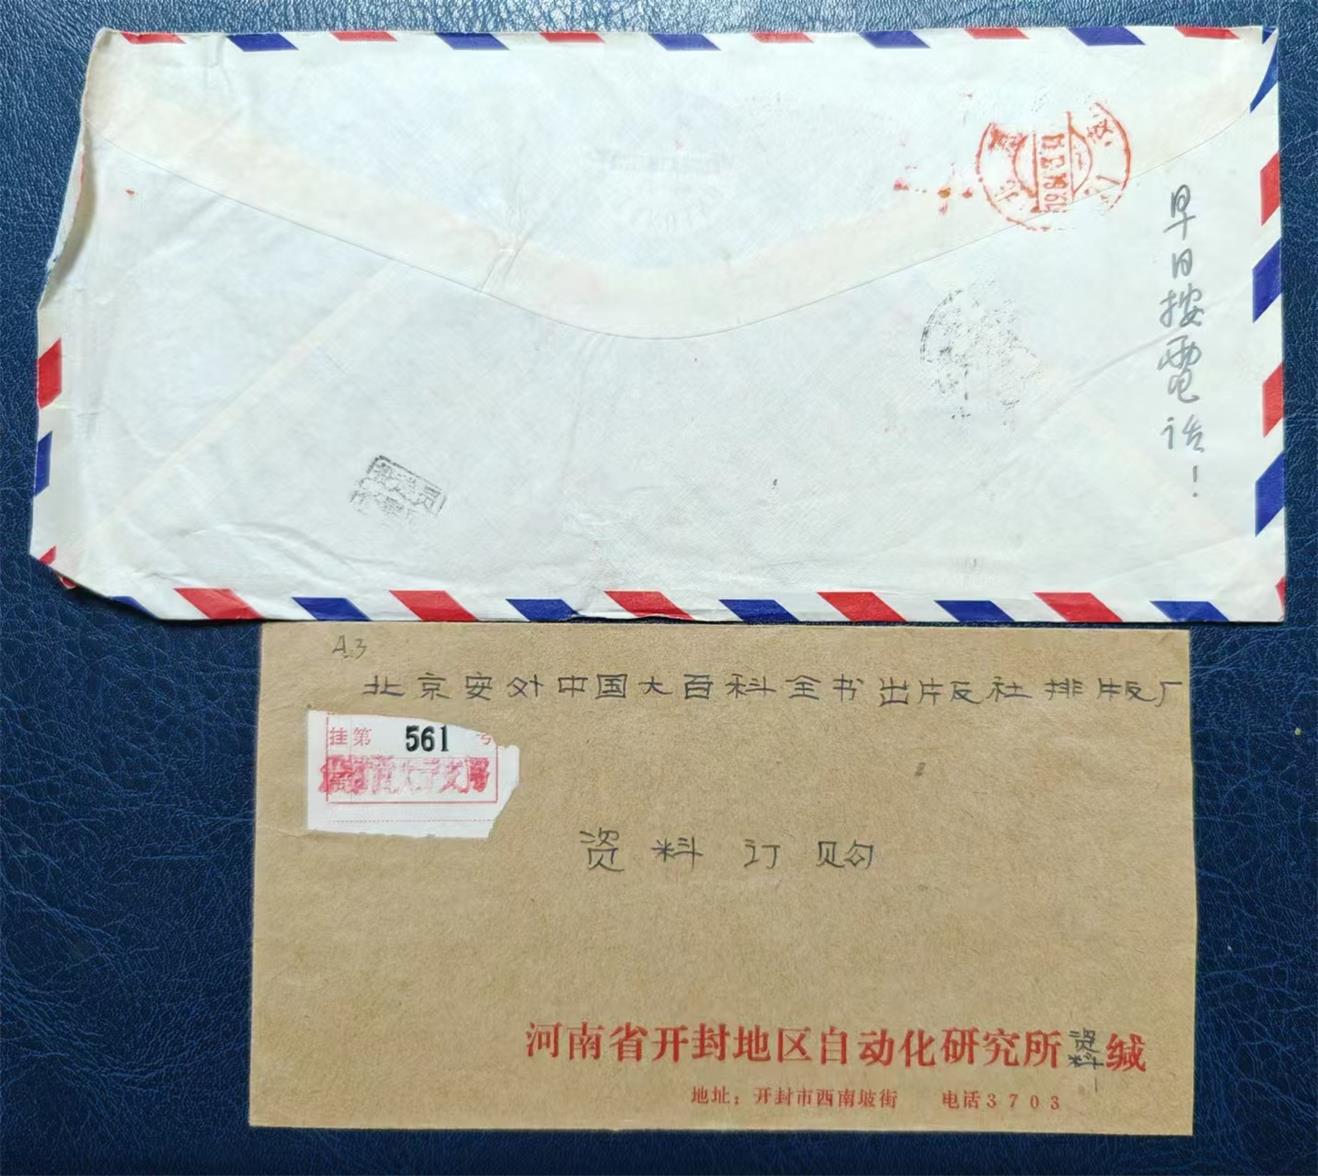 早日按電话！
A3
北京安外中国大百科全书出版社排版厂
挂第 561 号
资料订购
河南省开封地区自动化研究所资料缄
地址：开封市西南坡街 电话3703